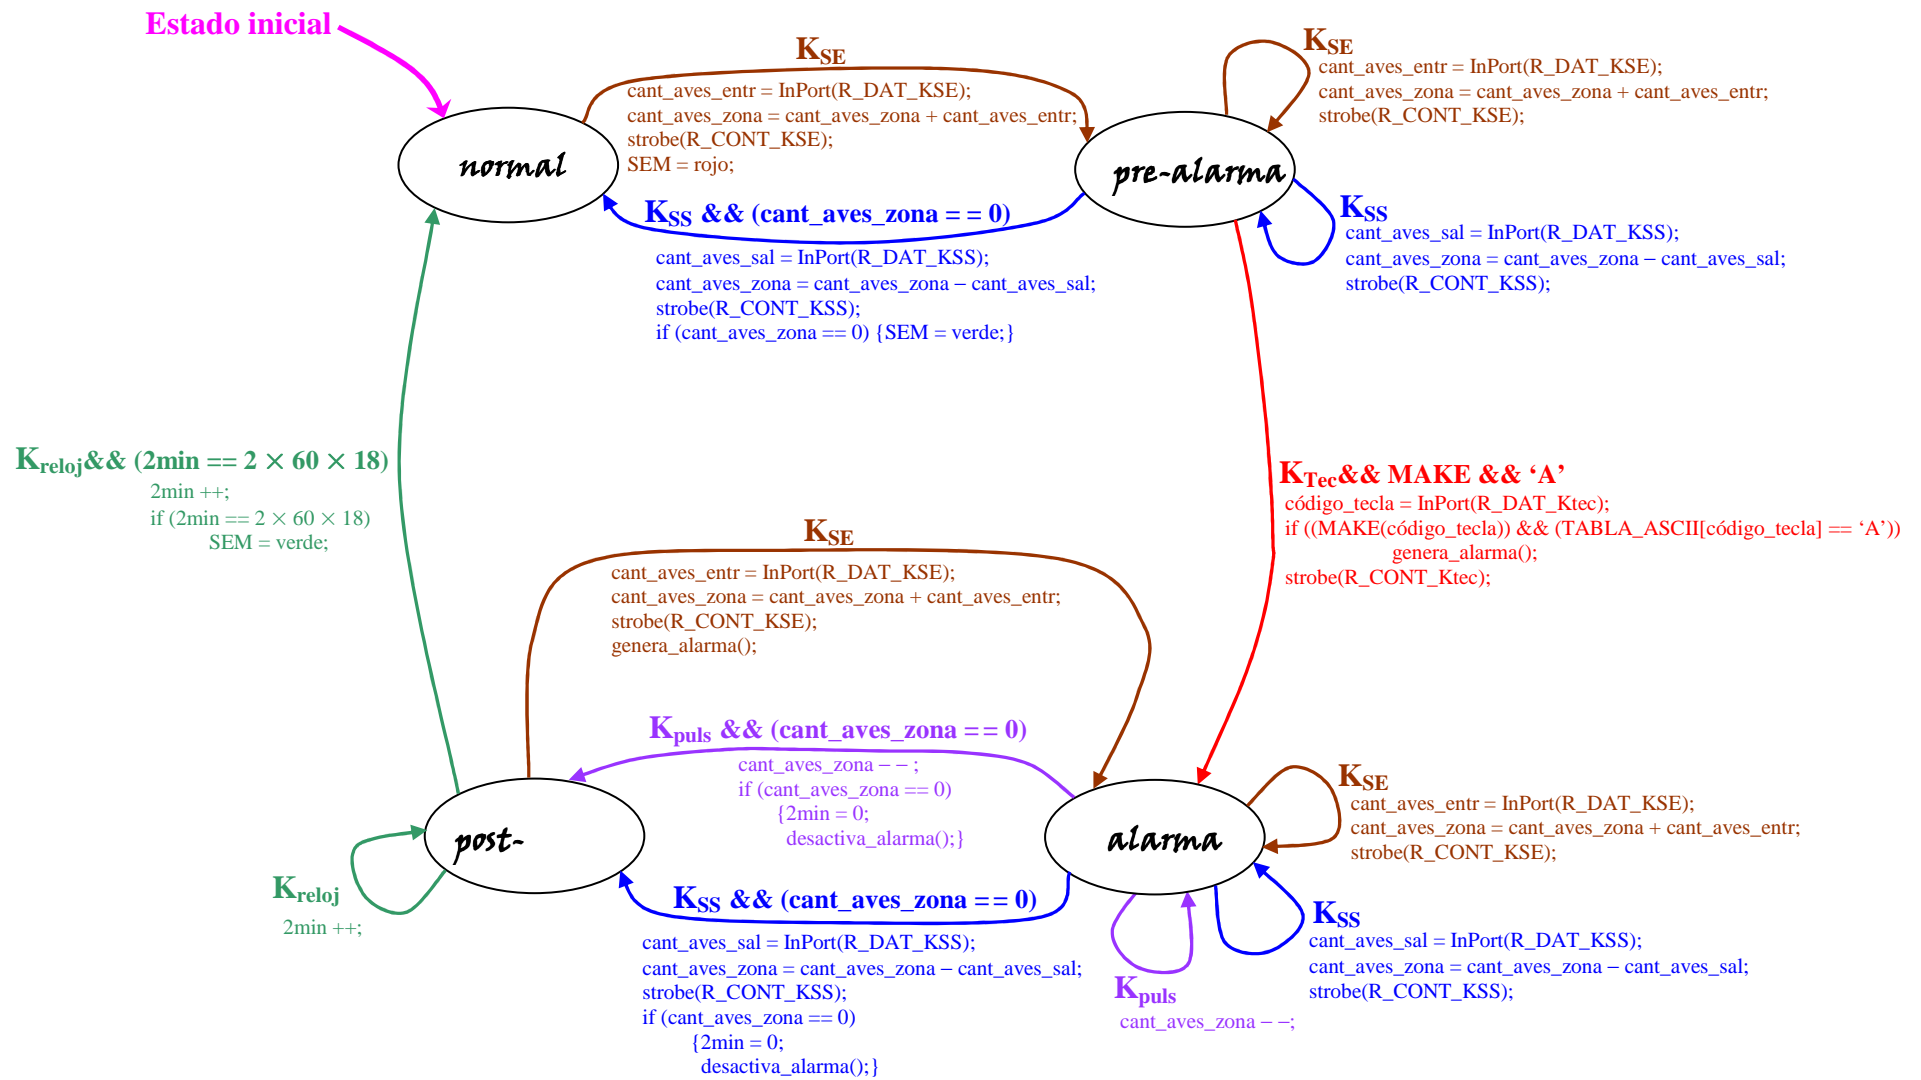 Estado inicial
KSE
cant_aves_entr = InPort(R_DAT_KSE);
cant_aves_zona = cant_aves_zona + cant_aves_entr;
strobe(R_CONT_KSE);
SEM = rojo;
KSE
cant_aves_entr = InPort(R_DAT_KSE);
cant_aves_zona = cant_aves_zona + cant_aves_entr;
strobe(R_CONT_KSE);
normal
pre-alarma
KSS && (cant_aves_zona = = 0)
cant_aves_sal = InPort(R_DAT_KSS);
cant_aves_zona = cant_aves_zona − cant_aves_sal;
strobe(R_CONT_KSS);
if (cant_aves_zona == 0) {SEM = verde;}
KSS
cant_aves_sal = InPort(R_DAT_KSS);
cant_aves_zona = cant_aves_zona − cant_aves_sal;
strobe(R_CONT_KSS);
Kreloj&& (2min == 2 × 60 × 18)
2min ++;
if (2min == 2 × 60 × 18)
SEM = verde;
KTec&& MAKE && ‘A’
código_tecla = InPort(R_DAT_Ktec);
if ((MAKE(código_tecla)) && (TABLA_ASCII[código_tecla] == ‘A’))
genera_alarma();
strobe(R_CONT_Ktec);
KSE
cant_aves_entr = InPort(R_DAT_KSE);
cant_aves_zona = cant_aves_zona + cant_aves_entr;
strobe(R_CONT_KSE);
genera_alarma();
Kpuls && (cant_aves_zona = = 0)
cant_aves_zona − − ;
if (cant_aves_zona == 0)
{2min = 0;
desactiva_alarma();}
post-
alarma
KSE
cant_aves_entr = InPort(R_DAT_KSE);
cant_aves_zona = cant_aves_zona + cant_aves_entr;
strobe(R_CONT_KSE);
Kreloj
2min ++;
KSS && (cant_aves_zona = = 0)
cant_aves_sal = InPort(R_DAT_KSS);
cant_aves_zona = cant_aves_zona − cant_aves_sal;
strobe(R_CONT_KSS);
if (cant_aves_zona == 0)
{2min = 0;
desactiva_alarma();}
Kpuls
cant_aves_zona − −;
KSS
cant_aves_sal = InPort(R_DAT_KSS);
cant_aves_zona = cant_aves_zona − cant_aves_sal;
strobe(R_CONT_KSS);